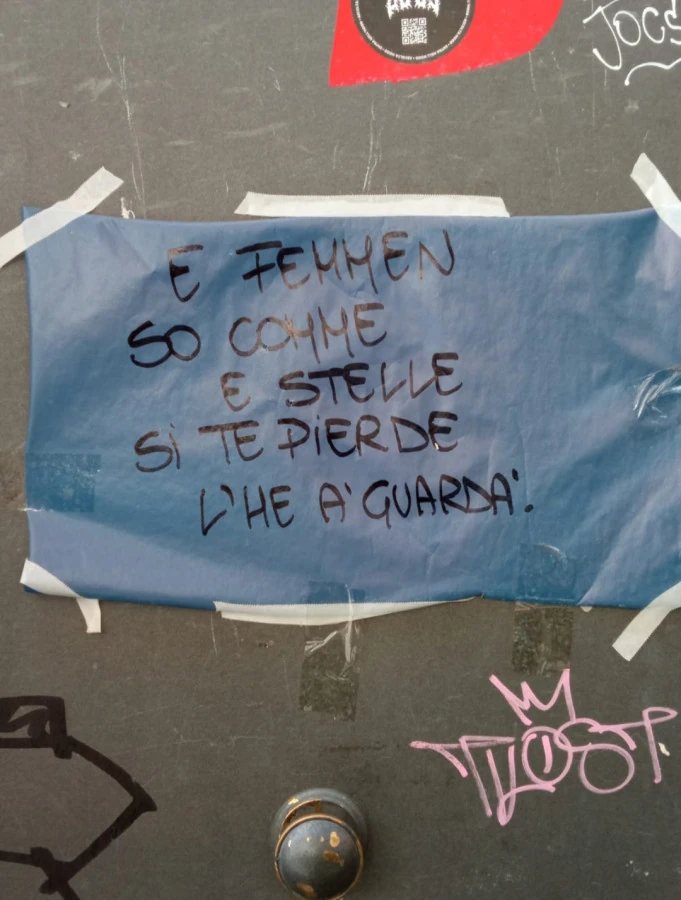 JOCS
E FEMMEN
SO COMME
E STELLE
Si TE PiERDE
L'HE A' GUARDA'.